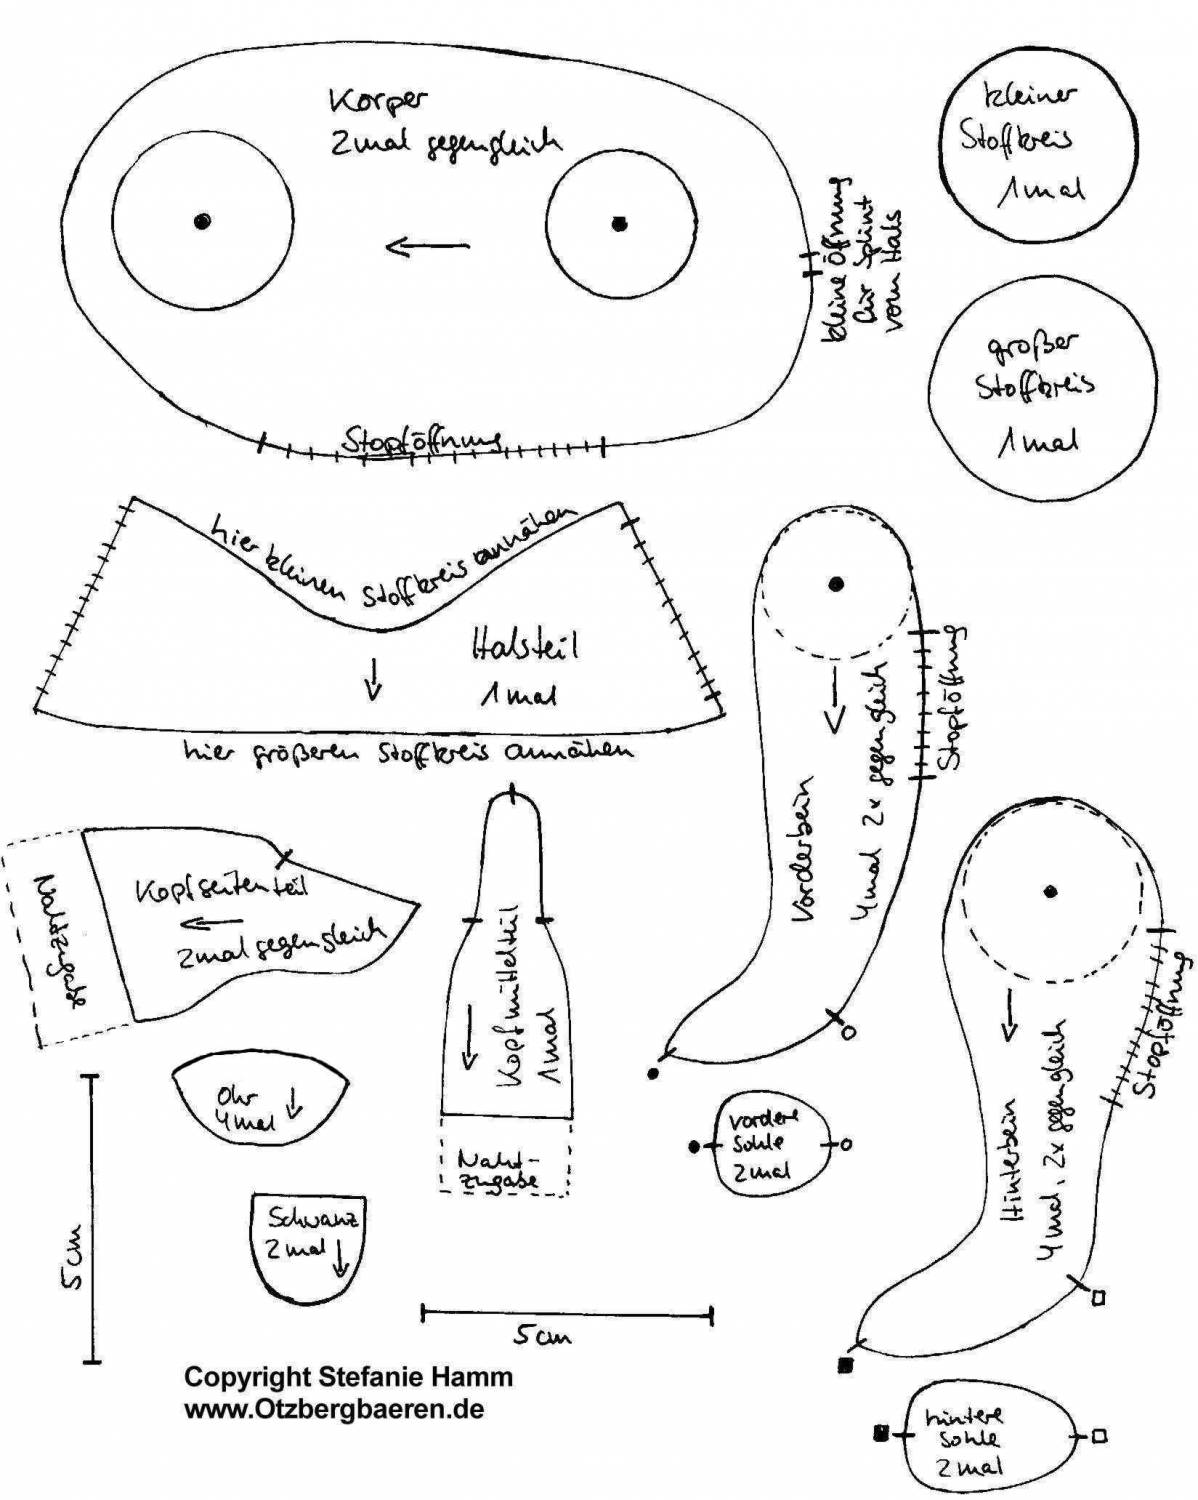 Körper
2mal gegengleich
kleine Öffnung
für Splint
vom Hals
Stopföffnung
kleiner
Stoffkreis
1mal
großer
Stoffkreis
1mal
hier kleinen Stoffkreis annähen
Halsteil
1mal
hier größeren Stoffkreis annähen
Vorderbein
4mal 2x gegengleich
Stopföffnung
Nahtzugabe
Kopfseitenteil
2mal gegengleich
Kopfmittelteil
1mal
Naht-
zugabe
Ohr
4mal
Schwanz
2mal
vordere
Sohle
2mal
Hinterbein
4mal, 2x gegengleich
Stopföffnung
hintere
Sohle
2mal
5cm
5cm
Copyright Stefanie Hamm
www.Otzbergbaeren.de